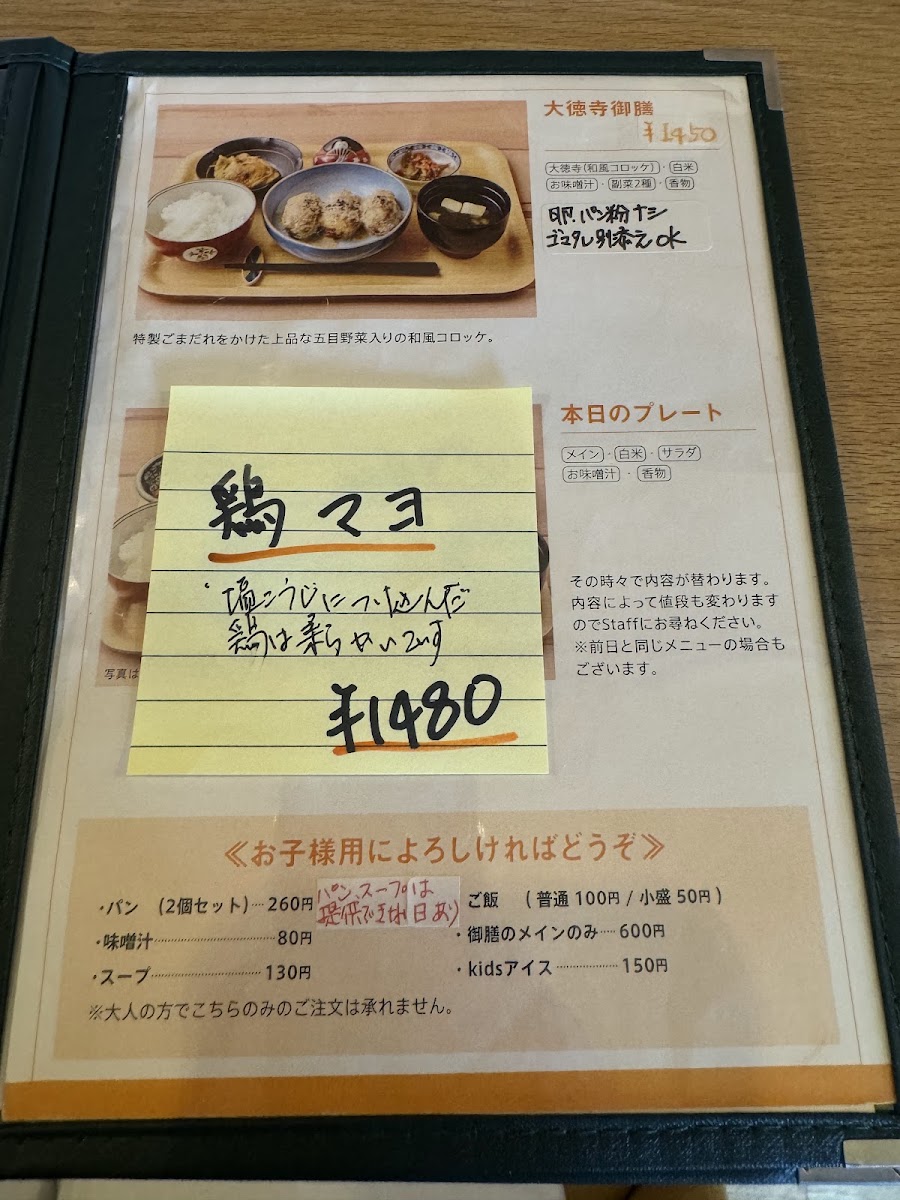 大徳寺御膳
¥1450
大徳寺(和風コロッケ)・白米
お味噌汁・副菜2種・香物
卵、パン粉ナシ
ゴマダレ別添えOK
特製ごまだれをかけた上品な五目野菜入りの和風コロッケ。
本日のプレート
メイン・白米・サラダ
お味噌汁・香物
鶏マヨ
塩こうじにつけ込んだ
鶏は柔らかいです
¥1480
その時々で内容が替わります。
内容によって値段も変わります
のでStaffにお尋ねください。
※前日と同じメニューの場合も
ございます。
写真は
≪お子様用によろしければどうぞ≫
・パン (2個セット)…260円
パン、スープは
提供できない日あり
・味噌汁………………80円
・スープ………………130円
ご飯 (普通100円/小盛50円)
・御膳のメインのみ……600円
・kidsアイス………………150円
※大人の方でこちらのみのご注文は承れません。